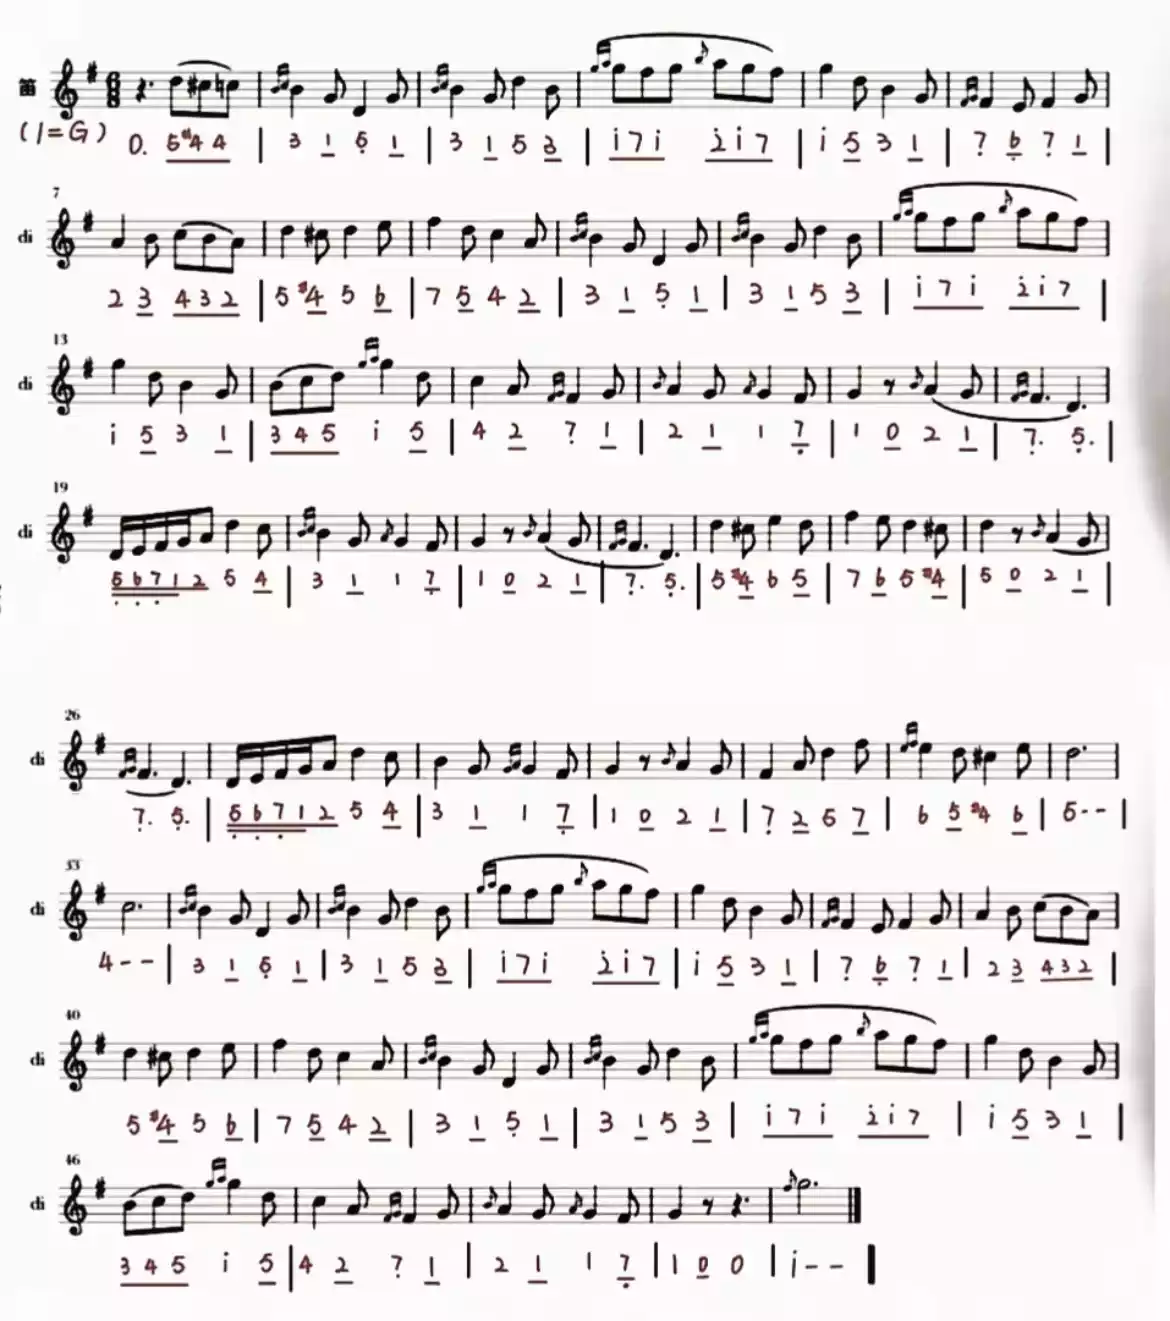 笛
(1=G) 0. 5 #4 4 | 3 1 5̣ 1 | 3 1 5 3 | i 7 i 2̇ i 7 | i 5 3 1 | 7̣ 6̣ 7̣ 1 |
7
di
2 3 4 3 2 | 5 #4 5 6 | 7 5 4 2 | 3 1 5̣ 1 | 3 1 5 3 | i 7 i 2̇ i 7 |
13
di
i 5 3 1 | 3 4 5 i 5 | 4 2 7̣ 1 | 2 1 1 7̣ | 1 0 2 1 | 7̣. 5̣. |
19
di
5̣ 6̣ 7̣ 1 2 5 4 | 3 1 1 7̣ | 1 0 2 1 | 7̣. 5̣. | 5 #4 6 5 | 7 6 5 #4 | 5 0 2 1 |
26
di
7̣. 5̣. | 5̣ 6̣ 7̣ 1 2 5 4 | 3 1 1 7̣ | 1 0 2 1 | 7̣ 2 5 7 | 6 5 #4 6 | 5 - - |
33
di
4 - - | 3 1 5̣ 1 | 3 1 5 3 | i 7 i 2̇ i 7 | i 5 3 1 | 7̣ 6̣ 7̣ 1 | 2 3 4 3 2 |
40
di
5 #4 5 6 | 7 5 4 2 | 3 1 5̣ 1 | 3 1 5 3 | i 7 i 2̇ i 7 | i 5 3 1 |
46
di
3 4 5 i 5 | 4 2 7̣ 1 | 2 1 1 7̣ | 1 0 0 | i - - |